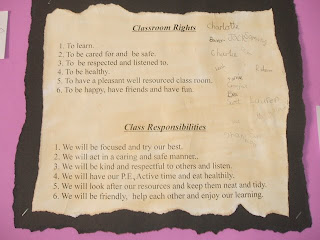 Classroom Rights
Charlotte
1. To learn.
2. To be cared for and be safe.
Charlie
3. To be respected and listened to.
4. To be healthy.
Adam
5. To have a pleasant well resourced class room.
6. To be happy, have friends and have fun.
Class Responsibilities
1. We will be focused and try our best.
2. We will act in a caring and safe manner..
3. We will be kind and respectful to others and listen.
4. We will have our P.E, Active time and eat healthily.
5. We will look after our resources and keep them neat and tidy.
6. We will be friendly, help each other and enjoy our learning.